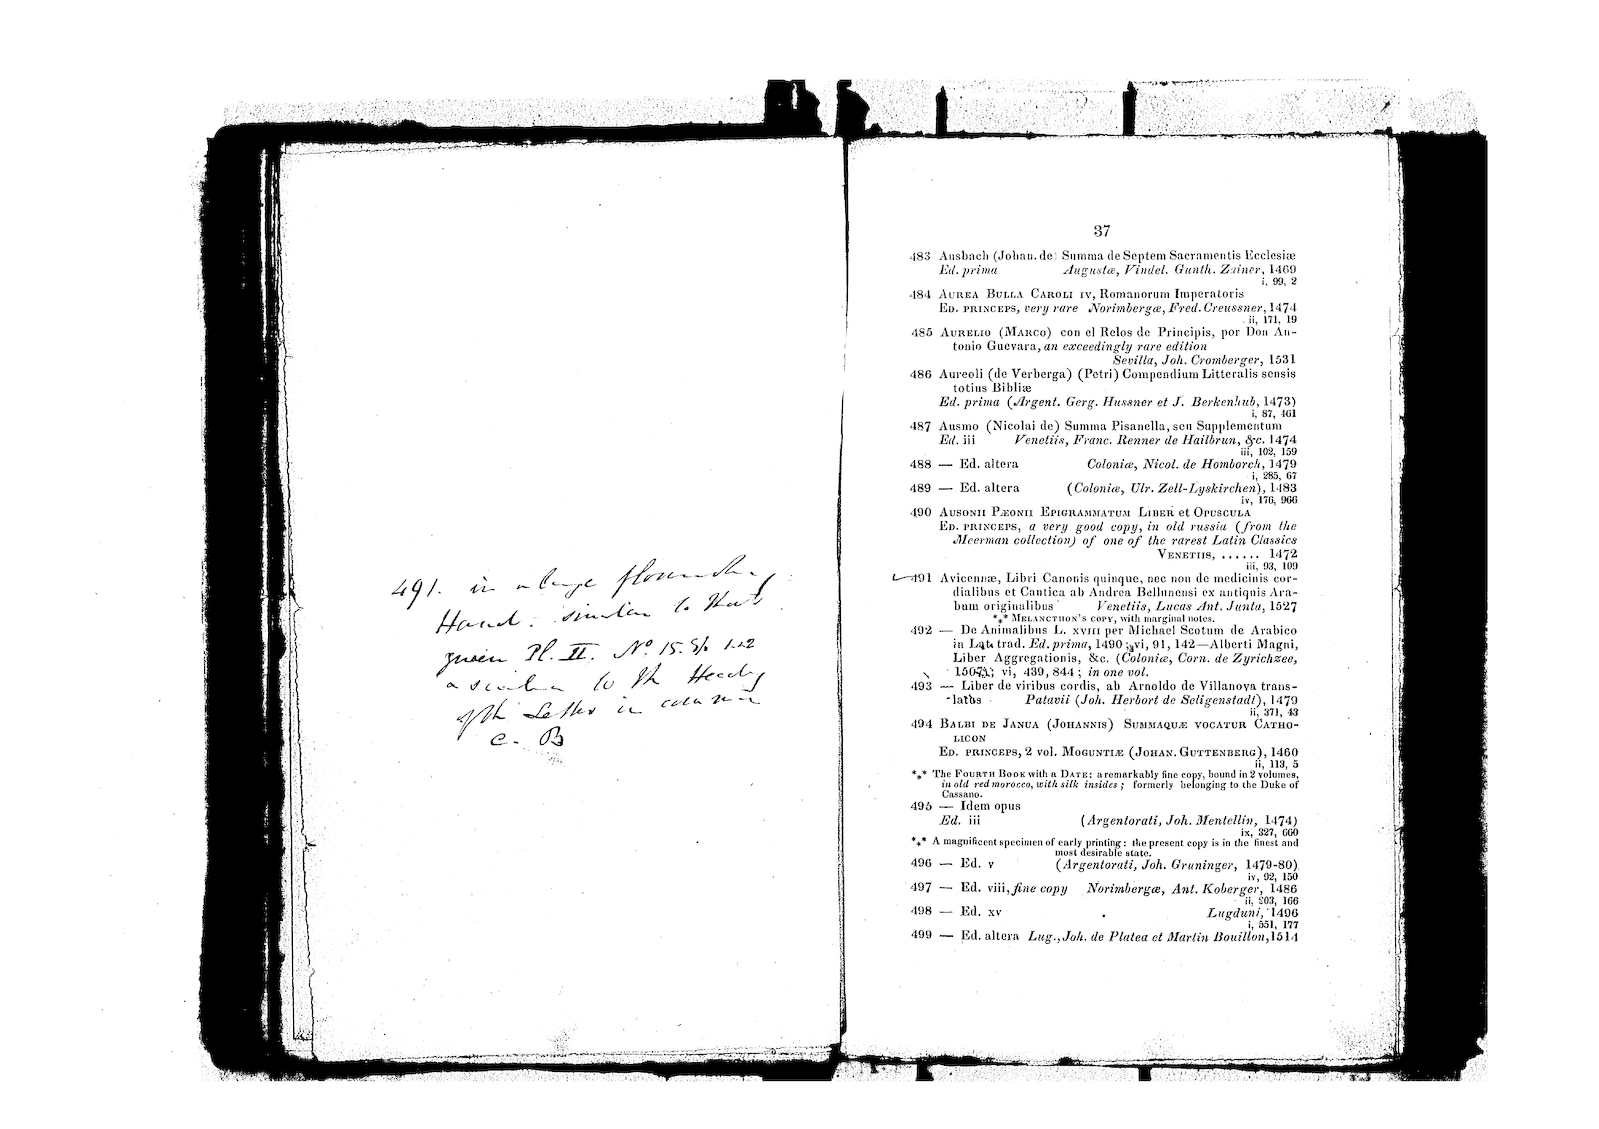 491. in a large flourishing
Hand. similar to that
given Pl. II. No. 15. 1.22
a similar to the Heading
of the Letter in column
C. B
37
483 Ausbach (Johan. de) Summa de Septem Sacramentis Ecclesiæ
Ed. prima Augustæ, Vindel. Gunth. Zainer, 1469
i, 99, 2
484 AUREA BULLA CAROLI IV, Romanorum Imperatoris
ED. PRINCEPS, very rare Norimbergæ, Fred. Creussner, 1474
ii, 171, 19
485 AURELIO (MARCO) con el Relos de Principis, por Don An-
tonio Guevara, an exceedingly rare edition
Sevilla, Joh. Cromberger, 1531
486 Aureoli (de Verberga) (Petri) Compendium Litteralis sensis
totius Bibliæ
Ed. prima (Argent. Gerg. Hussner et J. Berkenhub, 1473)
i, 87, 461
487 Ausmo (Nicolai de) Summa Pisanella, seu Supplementum
Ed. iii Venetiis, Franc. Renner de Hailbrun, &c. 1474
iii, 102, 159
488 — Ed. altera Coloniæ, Nicol. de Homborch, 1479
i, 285, 67
489 — Ed. altera (Coloniæ, Ulr. Zell-Lyskirchen), 1483
iv, 176, 966
490 AUSONII PÆONII EPIGRAMMATUM LIBER et OPUSCULA
ED. PRINCEPS, a very good copy, in old russia (from the
Meerman collection) of one of the rarest Latin Classics
VENETIIS, ...... 1472
iii, 93, 109
491 Avicennæ, Libri Canonis quinque, nec non de medicinis cor-
dialibus et Cantica ab Andrea Bellunensi ex antiquis Ara-
bum originalibus Venetiis, Lucas Ant. Junta, 1527
*** MELANCTHON'S COPY, with marginal notes.
492 — De Animalibus L. XVIII per Michael Scotum de Arabico
in Lat. trad. Ed. prima, 1490; vi, 91, 142—Alberti Magni,
Liber Aggregationis, &c. (Coloniæ, Corn. de Zyrichzee,
vi, 439, 844; in one vol.
493 — Liber de viribus cordis, ab Arnoldo de Villanova trans-
latus Patavii (Joh. Herbort de Seligenstadt), 1479
ii, 371, 43
494 BALBI DE JANUA (JOHANNIS) SUMMAQUÆ VOCATUR CATHO-
LICON
ED. PRINCEPS, 2 vol. MOGUNTIÆ (JOHAN. GUTTENBERG), 1460
ii, 113, 5
*** The FOURTH BOOK with a DATE: a remarkably fine copy, bound in 2 volumes,
in old red morocco, with silk insides; formerly belonging to the Duke of
Cassano.
495 — Idem opus
Ed. iii (Argentorati, Joh. Mentellin, 1474)
ix, 327, 660
*** A magnificent specimen of early printing: the present copy is in the finest and
most desirable state.
496 — Ed. v (Argentorati, Joh. Gruninger, 1479-80)
iv, 92, 150
497 — Ed. viii, fine copy Norimbergæ, Ant. Koberger, 1486
ii, 203, 166
498 — Ed. xv Lugduni, 1496
i, 551, 177
499 — Ed. altera Lug., Joh. de Platea et Martin Bouillon, 1514